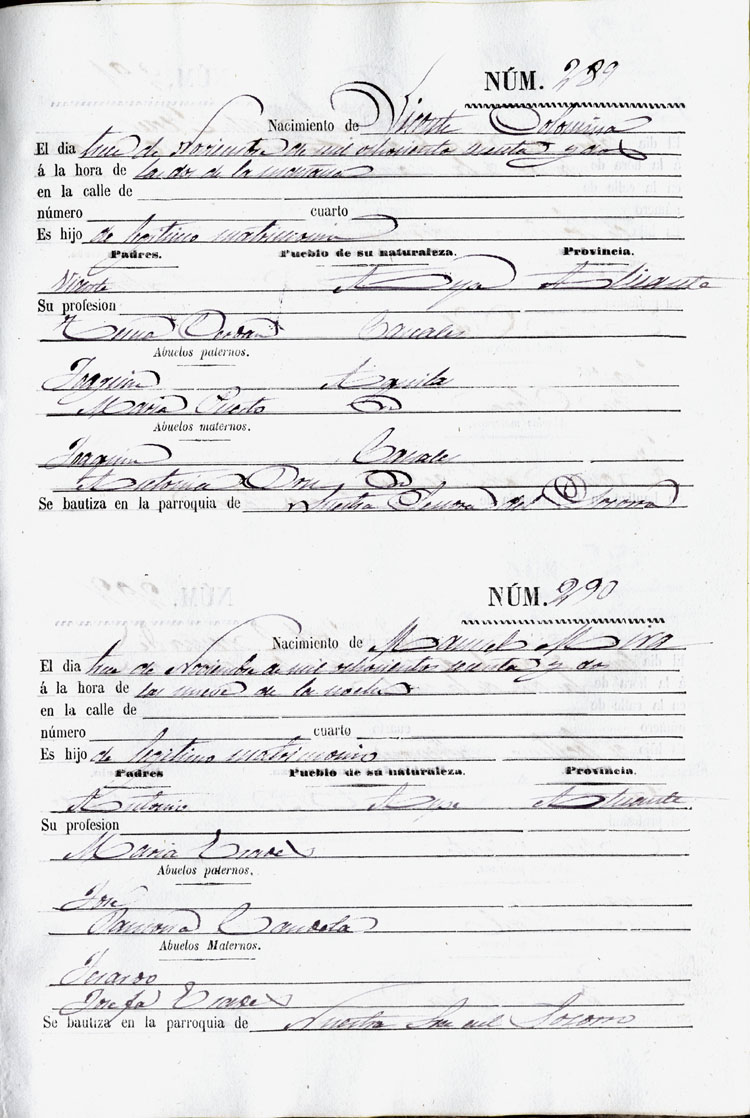 NÚM. 289
Nacimiento de Vicente Colomina
El dia trece de Noviembre de mil ochocientos sesenta y dos
á la hora de las dos de la mañana
en la calle de
número cuarto
Es hijo de legitimo matrimonio
Padres. Pueblo de su naturaleza. Provincia.
Vicente Aspe Alicante
Su profesion
Canales
Abuelos paternos.
Joaquin
Maria
Abuelos maternos.
Joaquin Canales
Antonia
Se bautiza en la parroquia de Nuestra Señora del Socorro
NÚM. 290
Nacimiento de Manuel Mira
El dia trece de Noviembre de mil ochocientos sesenta y dos
á la hora de las nueve de la noche
en la calle de
número cuarto
Es hijo de legitimo matrimonio
Padres Pueblo de su naturaleza. Provincia.
Antonio Aspe Alicante
Su profesion
Maria
Abuelos paternos.
José
Ramona Candela
Abuelos Maternos.
Josefa
Se bautiza en la parroquia de Nuestra Sra del Socorro